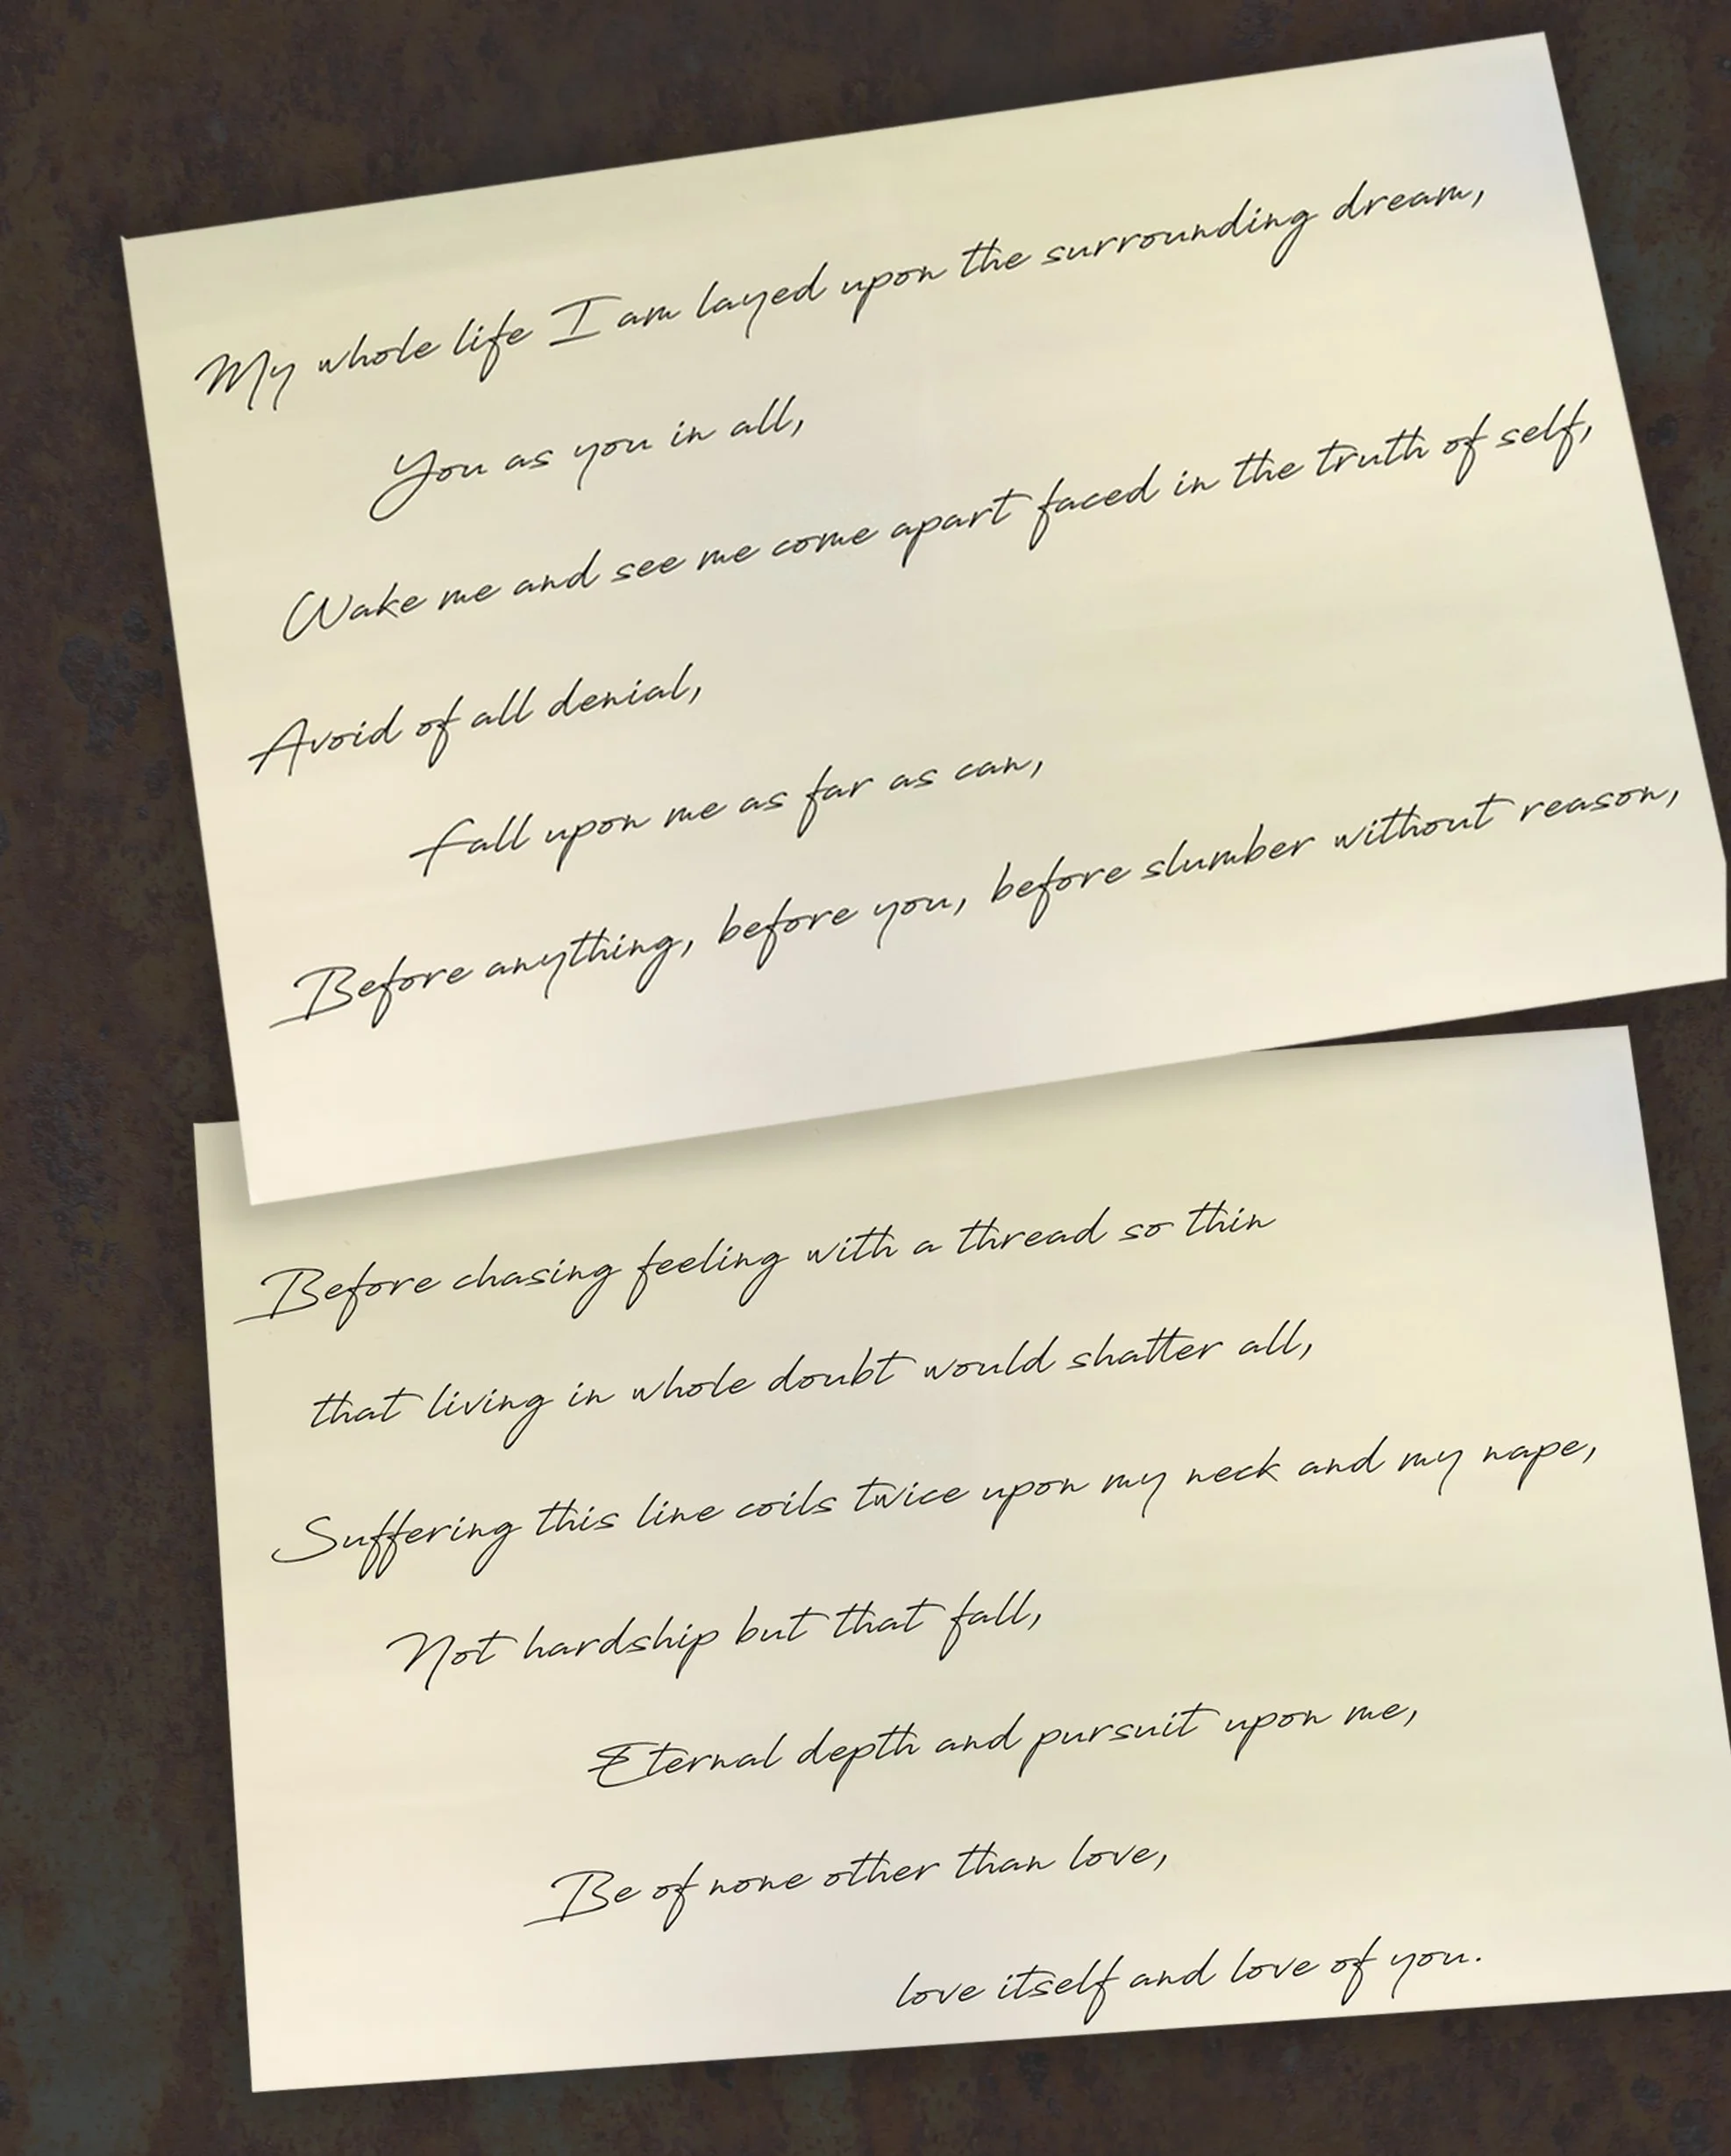 My whole life I am layed upon the surrounding dream,
You as you in all,
Wake me and see me come apart faced in the truth of self,
Avoid of all denial,
fall upon me as far as can,
Before anything, before you, before slumber without reason,
Before chasing feeling with a thread so thin
that living in whole doubt would shatter all,
Suffering this line coils twice upon my neck and my nape,
Not hardship but that fall,
Eternal depth and pursuit upon me,
Be of none other than love,
love itself and love of you.